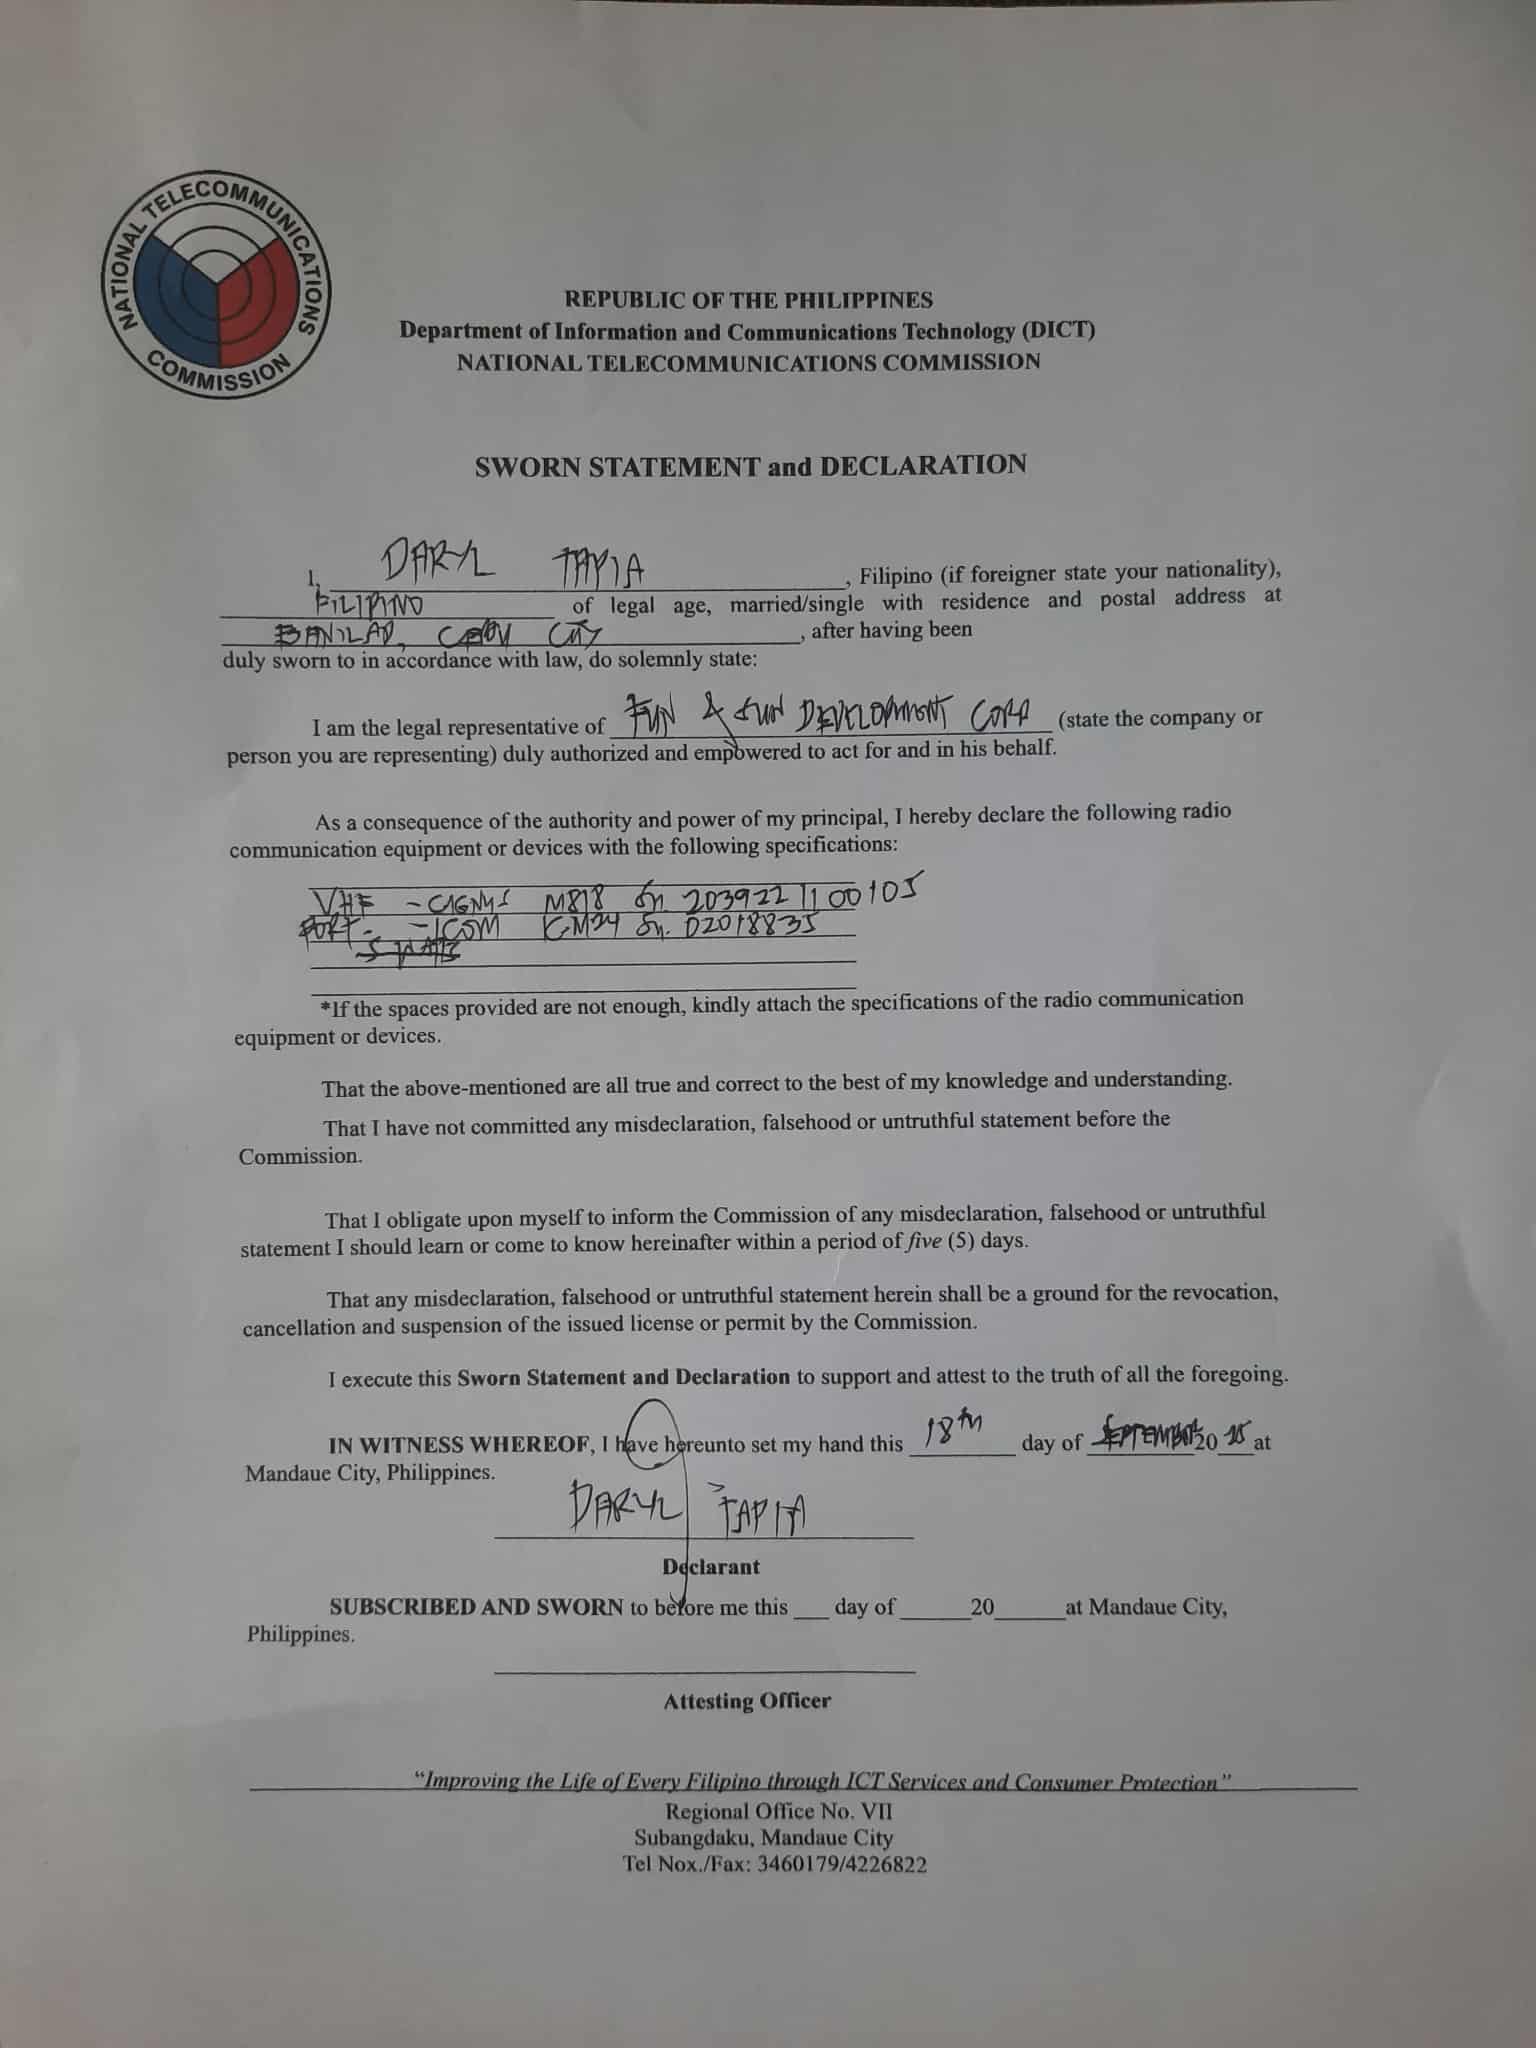 NATIONAL TELECOMMUNICATIONS COMMISSION
REPUBLIC OF THE PHILIPPINES
Department of Information and Communications Technology (DICT)
NATIONAL TELECOMMUNICATIONS COMMISSION
SWORN STATEMENT and DECLARATION
I, DARYL TAPIA, Filipino (if foreigner state your nationality),
FILIPINO of legal age, married/single with residence and postal address at
BANILAD, CEBU CITY, after having been
duly sworn to in accordance with law, do solemnly state:
I am the legal representative of FUN & SUN DEVELOPMENT CORP (state the company or
person you are representing) duly authorized and empowered to act for and in his behalf.
As a consequence of the authority and power of my principal, I hereby declare the following radio
communication equipment or devices with the following specifications:
VHF - CIGNUS M818 Sn. 203922 1100105
PORT. - ICOM GM24 Sn. 02018835
*If the spaces provided are not enough, kindly attach the specifications of the radio communication
equipment or devices.
That the above-mentioned are all true and correct to the best of my knowledge and understanding.
That I have not committed any misdeclaration, falsehood or untruthful statement before the
Commission.
That I obligate upon myself to inform the Commission of any misdeclaration, falsehood or untruthful
statement I should learn or come to know hereinafter within a period of five (5) days.
That any misdeclaration, falsehood or untruthful statement herein shall be a ground for the revocation,
cancellation and suspension of the issued license or permit by the Commission.
I execute this Sworn Statement and Declaration to support and attest to the truth of all the foregoing.
IN WITNESS WHEREOF, I have hereunto set my hand this 18th day of SEPTEMBER 20 25 at
Mandaue City, Philippines.
DARYL TAPIA
Declarant
SUBSCRIBED AND SWORN to before me this ___ day of ______20______at Mandaue City,
Philippines.
Attesting Officer
"Improving the Life of Every Filipino through ICT Services and Consumer Protection"
Regional Office No. VII
Subangdaku, Mandaue City
Tel Nox./Fax: 3460179/4226822